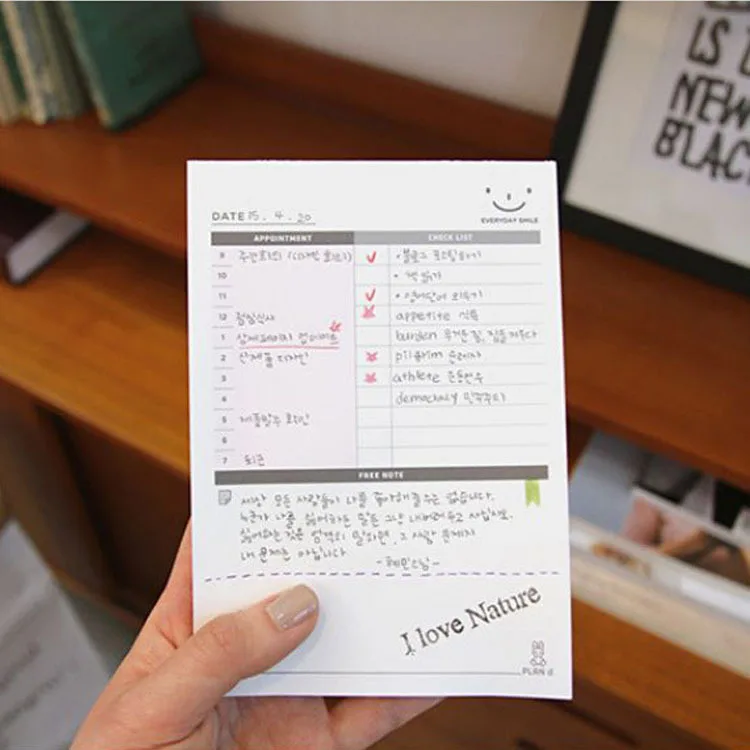 DATE 15. 4. 20
EVERYDAY SMILE
APPOINTMENT
CHECK LIST
9 주간회의 (디자인 회의)
10
11
12 점심식사
1 상세페이지 업데이트
2 신제품 디자인
3
5 제품발주 확인
6
7 퇴근
• 블로그 포스팅하기
• 책 읽기
• 영어단어 외우기
appetite 식욕
burden 무거운 짐, 짐을 지우다
pilgrim 순례자
athlete 운동선수
democracy 민주주의
FREE NOTE
세상 모든 사람들이 나를 좋아해줄 수는 없습니다.
누군가 나를 싫어하는 말은 그냥 내버려두고 사십시오.
싫어하는 것은 엄격히 말하면, 그 사람 문제지
내 문제는 아닙니다
-혜민스님-
I love Nature
PLAN d
IS
NEW
BLAC